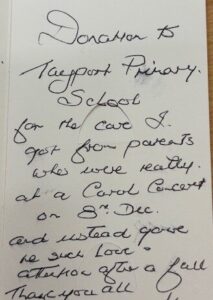 Donation to
Tayport Primary.
School
for the care I.
got from parents
who were really.
at a Carol Concert
on 8th Dec.
and instead gave
me such love.
attention after a fall
Thank you all